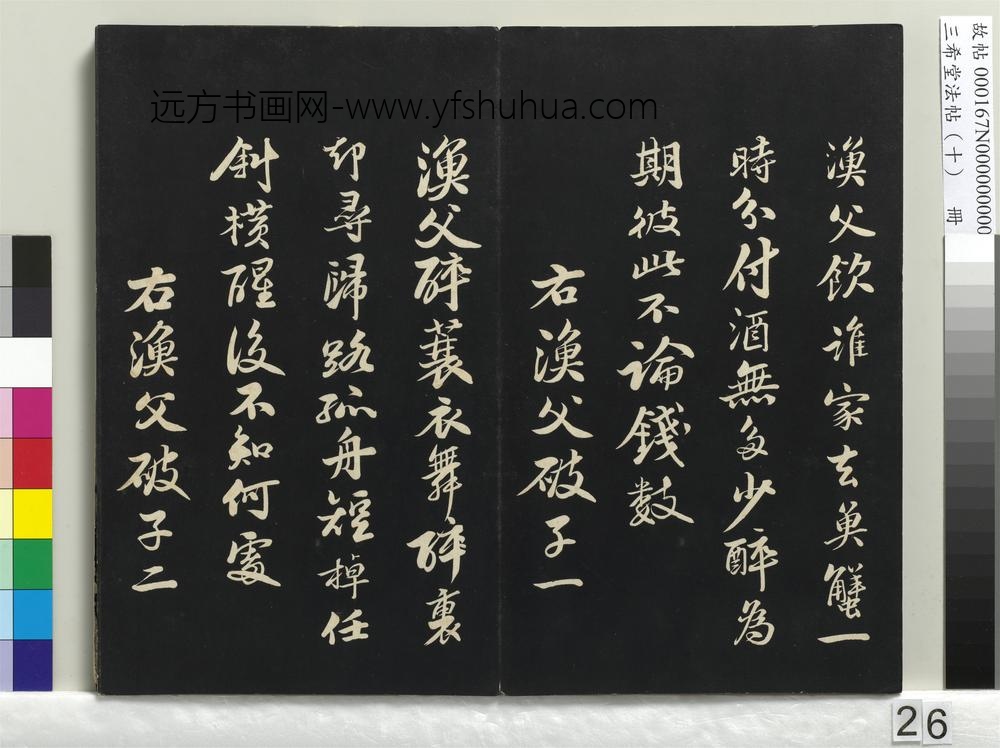 漁父飲誰家去莫蟹一
時分付酒無多少醉為
期彼此不論錢數
右漁父破子一
漁父醉蓑衣舞醉裏
却尋歸路孤舟短棹任
斜橫醒後不知何處
右漁父破子二
远方书画网-www.yfshuhua.com
故帖 000167N000000000
三希堂法帖（十） 冊
26